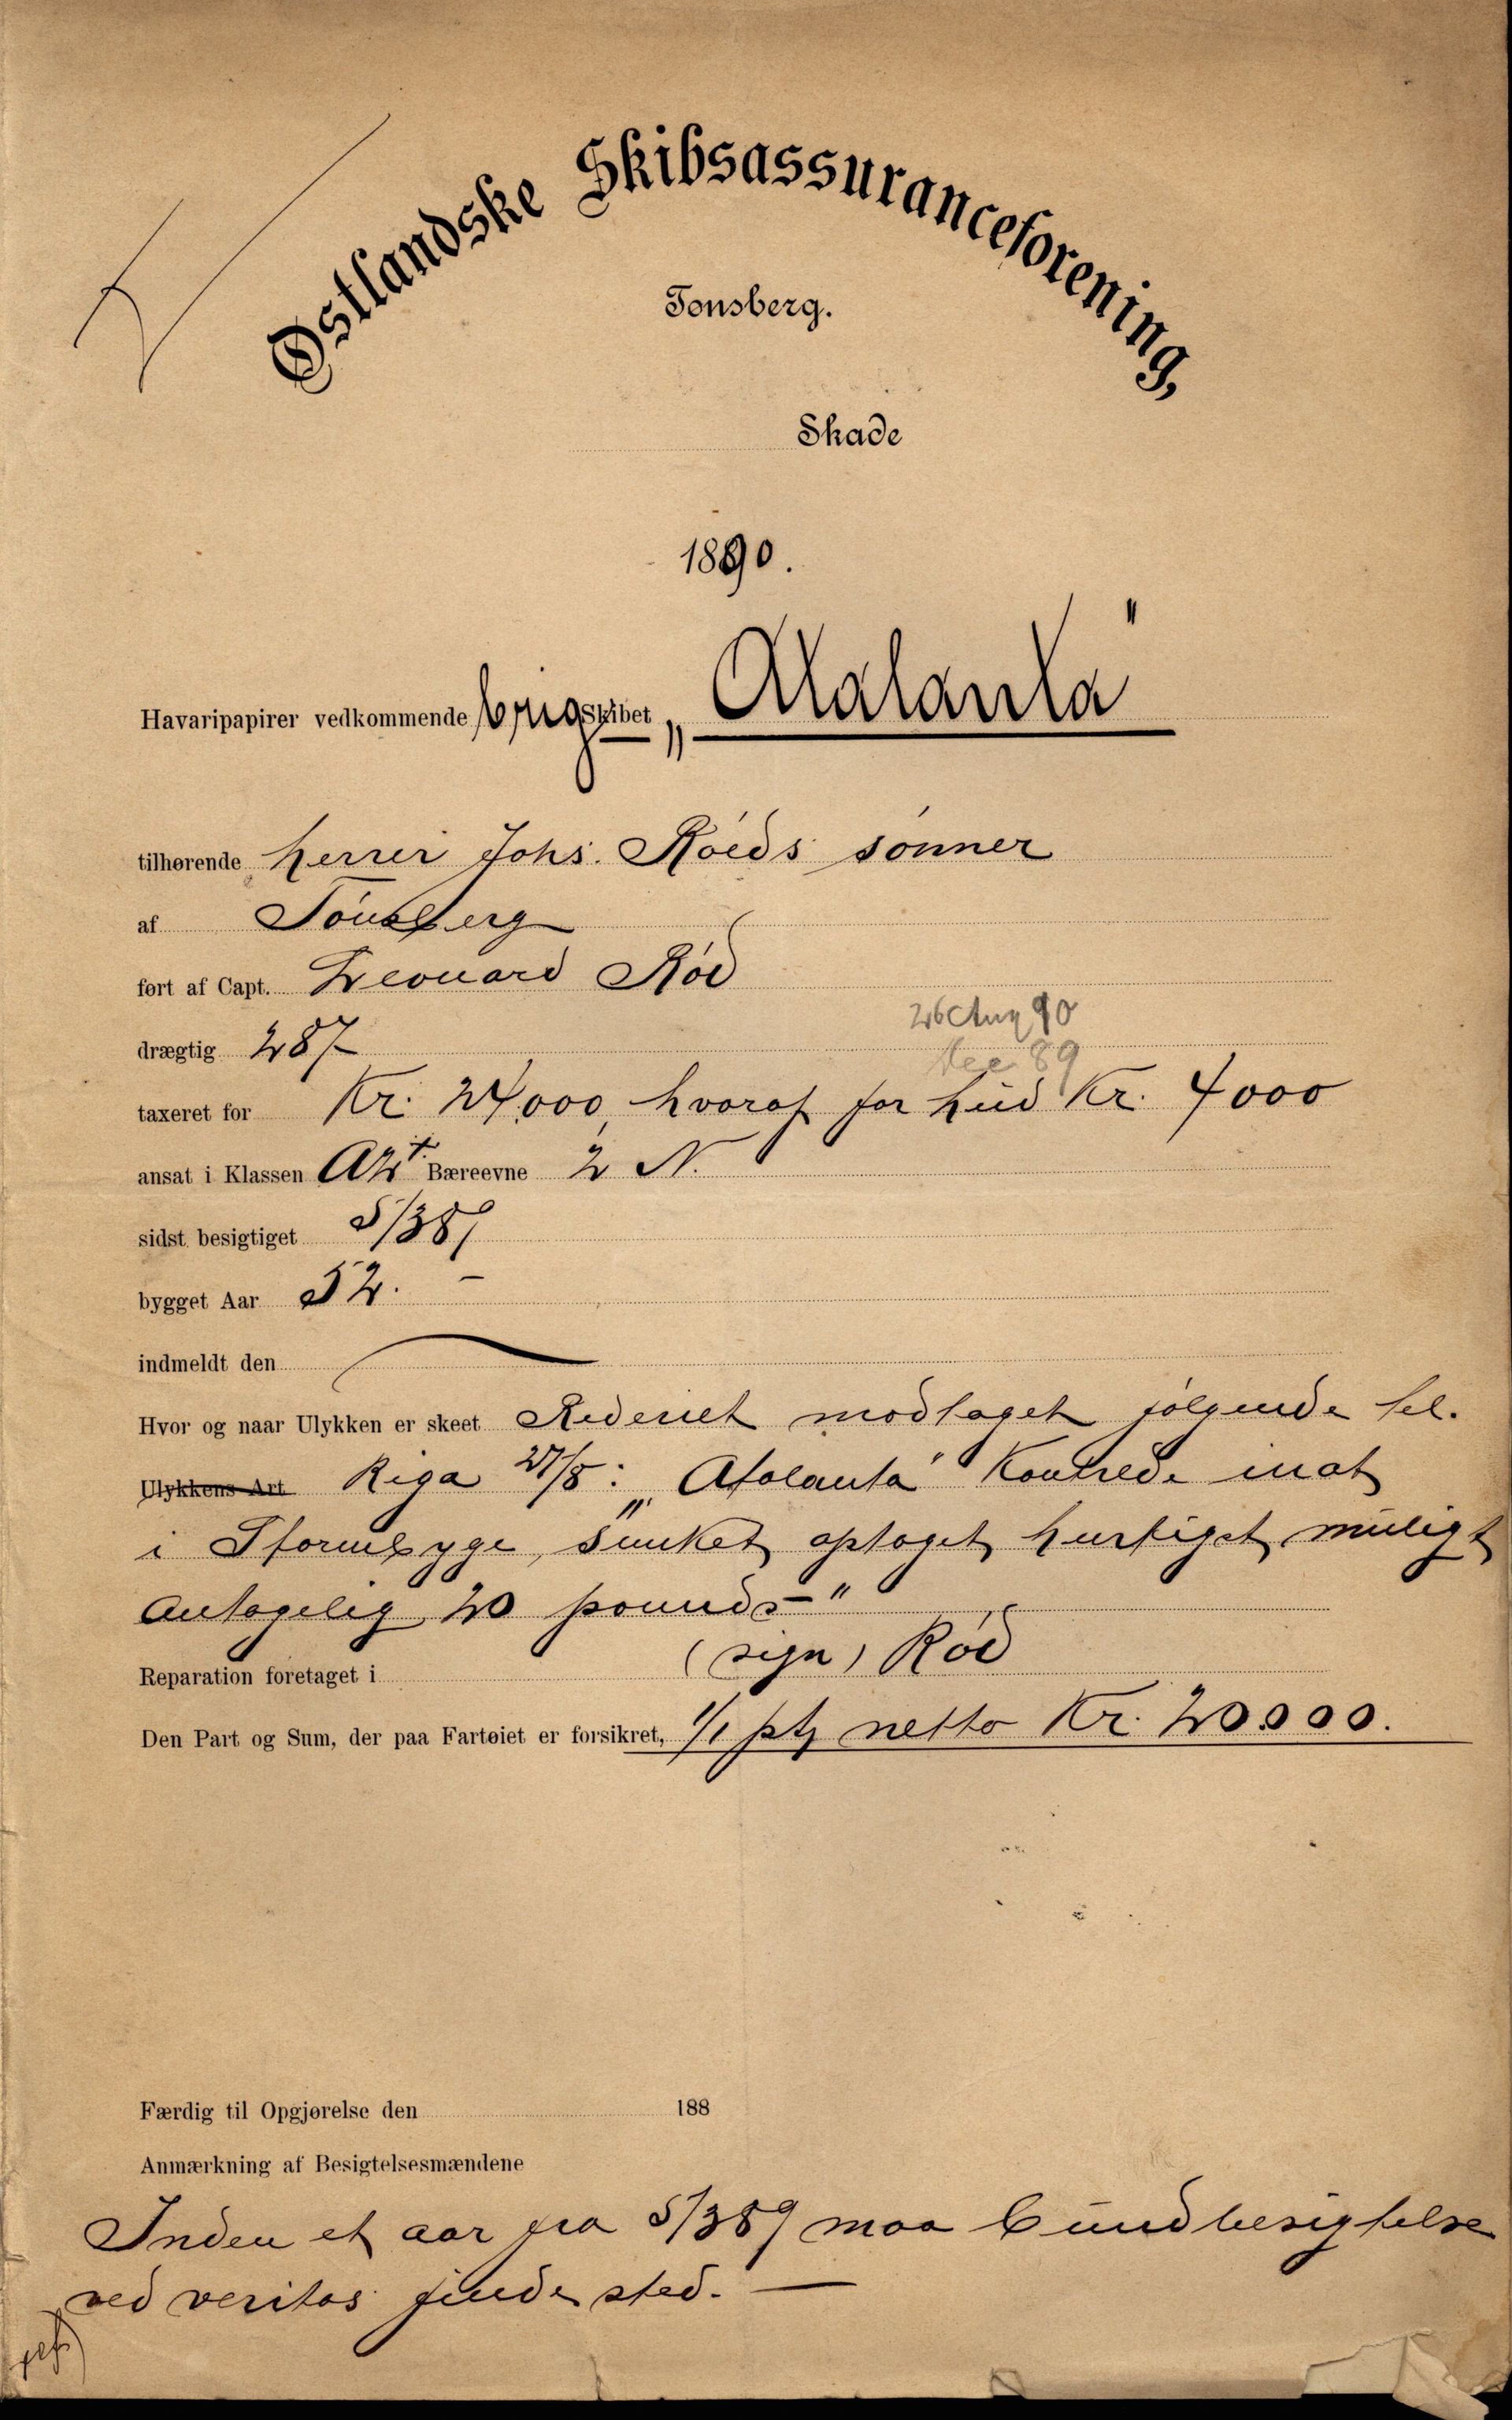 Østlandske Skibsassuranceforening,
Tonsberg.
Skade
1890.
Havaripapirer vedkommende brigskibet „Atalanta"
tilhørende herrer Johs. Röeds sönner
af Tönsberg
ført af Capt. Leonard Röd
26 Aug 90
drægtig 287
Dec 89
taxeret for Kr. 24,000, hvoraf for hud Kr. 4000
ansat i Klassen A2+ Bæreevne 2 N.
sidst besigtiget 5/3 89
bygget Aar 52. –
indmeldt den
Hvor og naar Ulykken er skeet Rederiet modtaget følgende tel.
Ulykkens Art Riga 27/8: „Atalanta" kantrede inat
i Stormbyge, sunket, optaget hurtigst muligt
antagelig 20 pounds –"
(sign) Röd
Reparation foretaget i
Den Part og Sum, der paa Fartøiet er forsikret, 1/1 pt netto Kr. 20000.
Færdig til Opgjørelse den 188
Anmærkning af Besigtelsesmændene
Inden et aar fra 5/3 89 maa bundbesigtelse
ved veritas finde sted. —